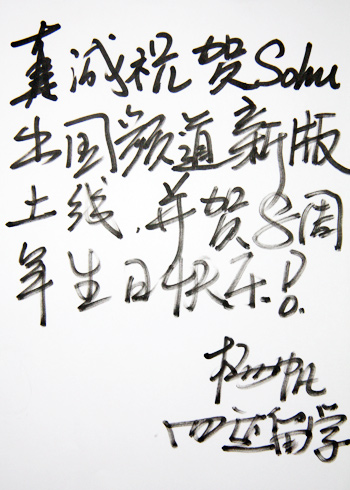 真诚祝贺Sohu
出国频道新版
上线,并贺8周
年生日快乐!
留学